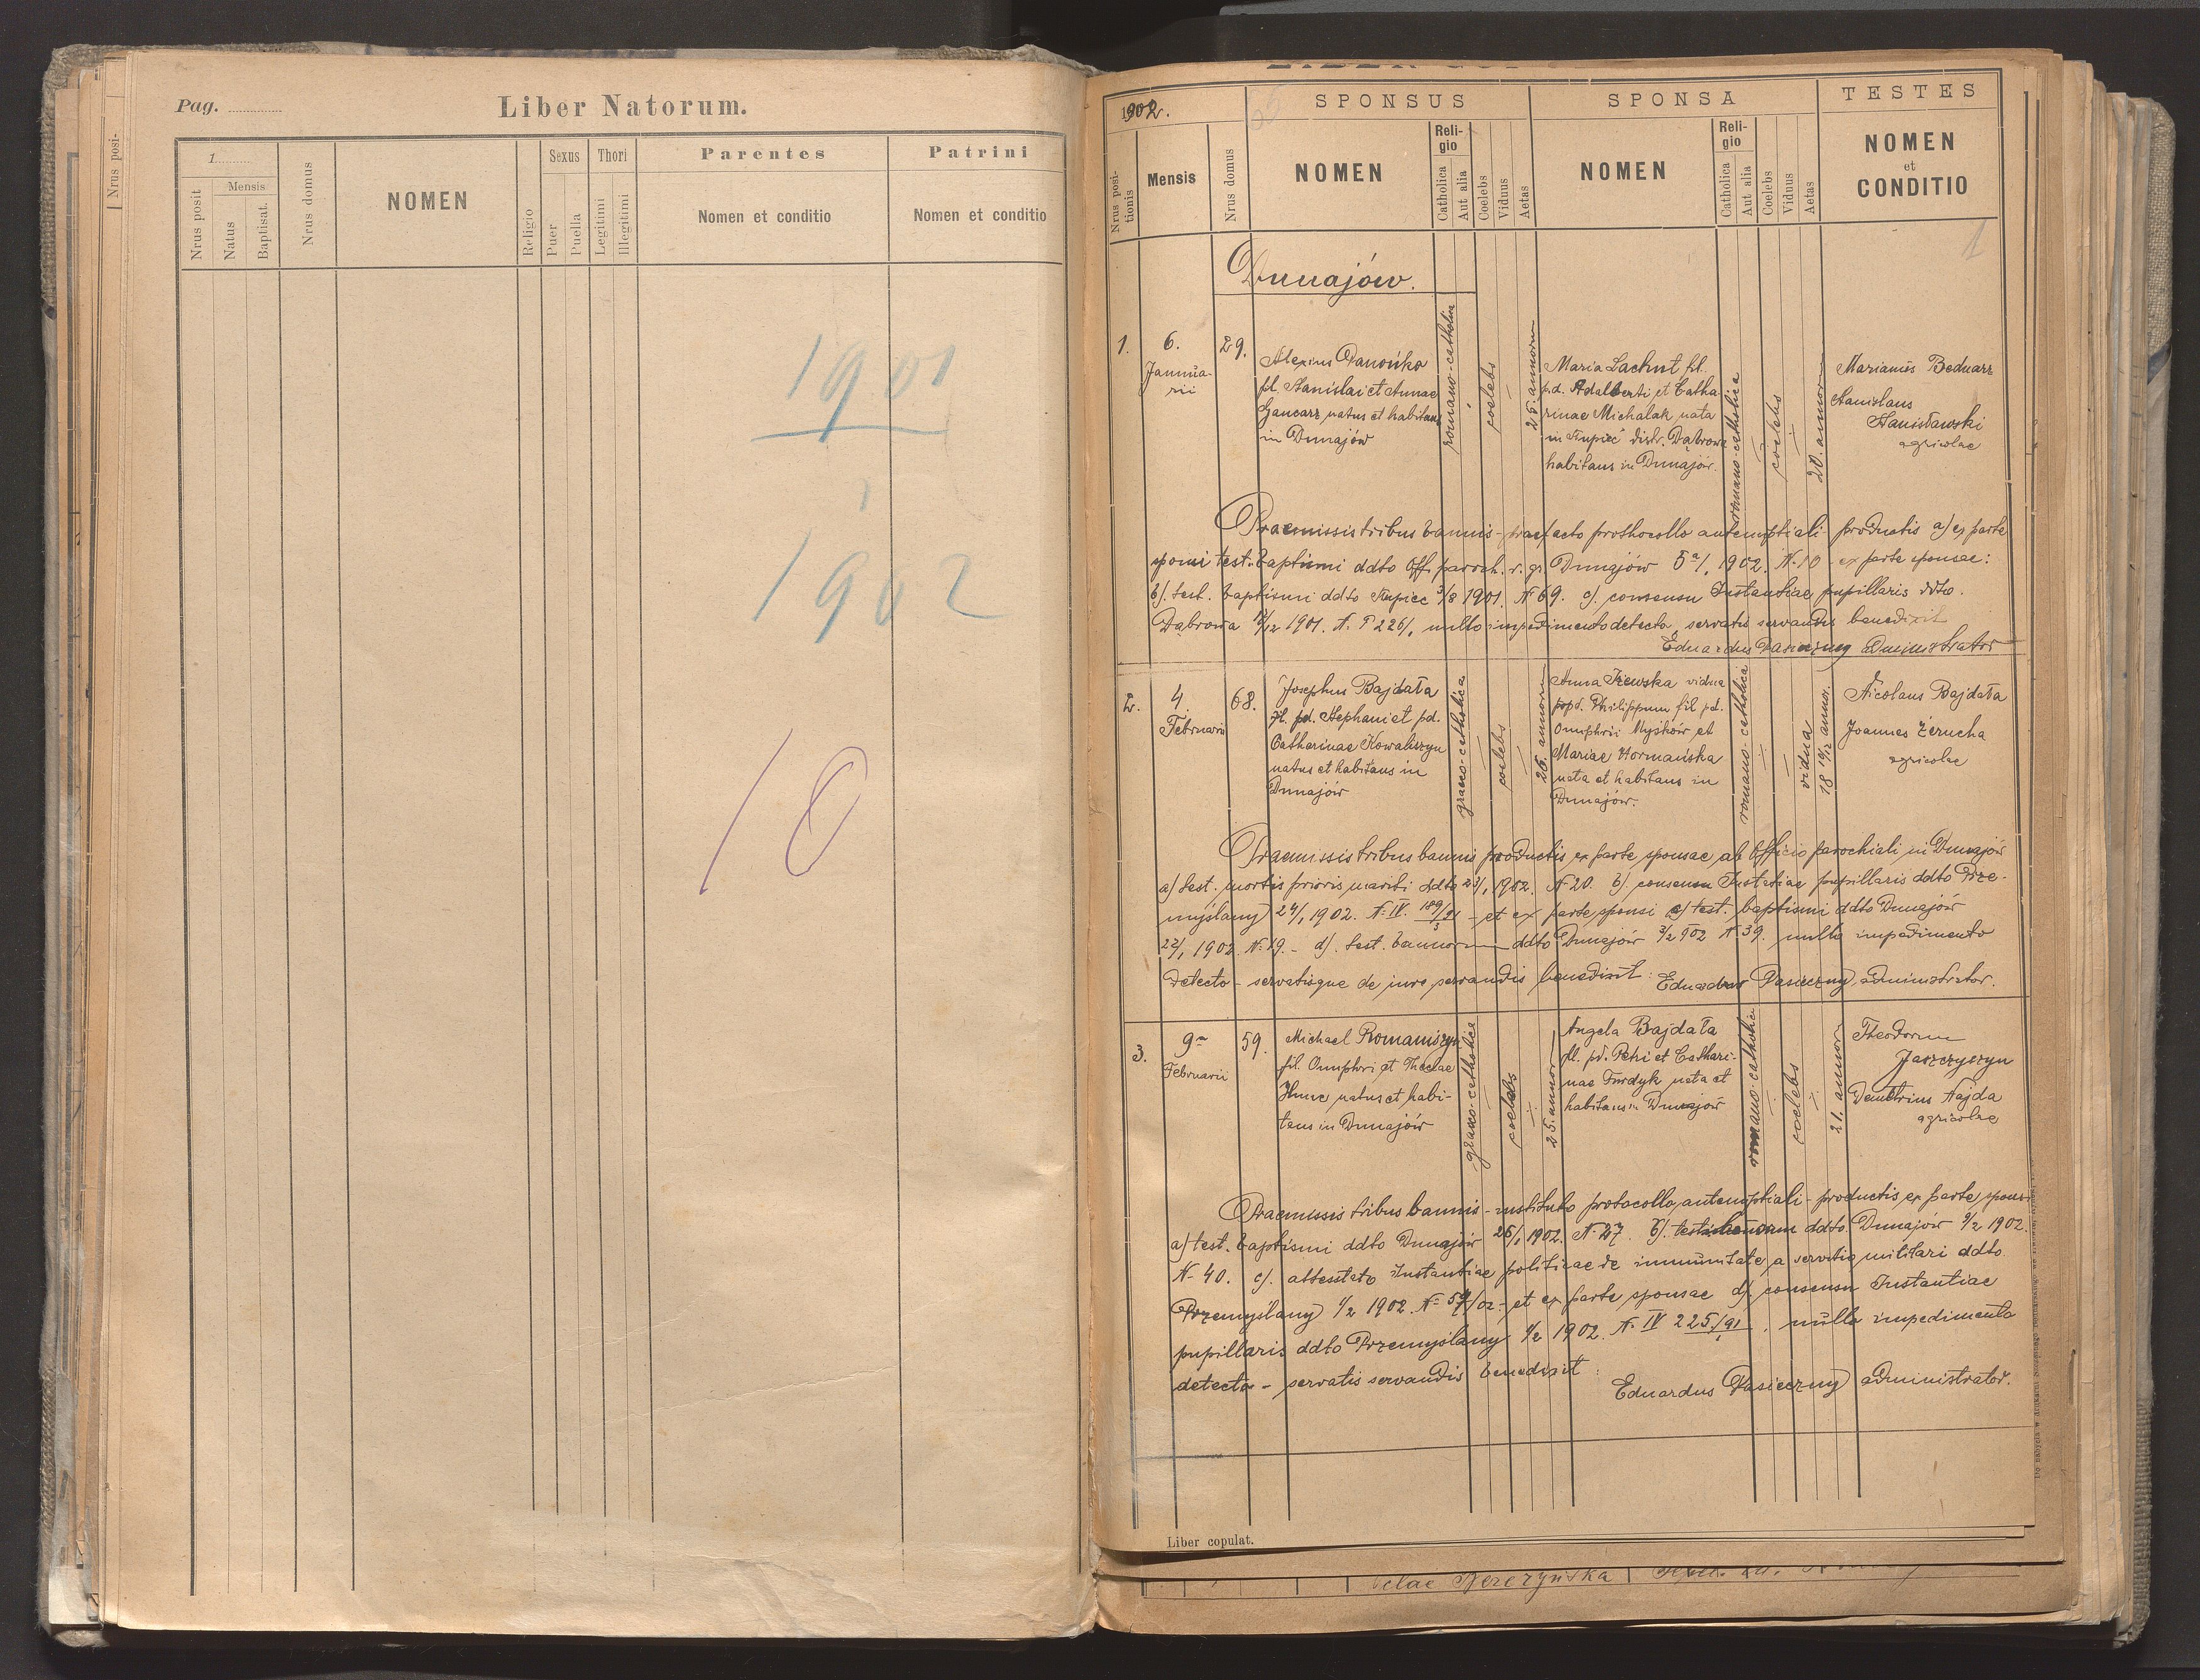 Pag.
Liber Natorum.
1
Nrus posit
Mensis
Natus
Baptisat.
Nrus domus
NOMEN
Religio
Sexus
Puer
Puella
Thori
Legitimi
Illegitimi
Parentes
Nomen et conditio
Patrini
Nomen et conditio
Nrus posi-
1901
1902
10
1902.
Nrus posi-
tionis
Mensis
Nrus domus
SPONSUS
NOMEN
Reli-
gio
Catholica
Aut alia
Coelebs
Viduus
Aetas
SPONSA
NOMEN
Reli-
gio
Catholica
Aut alia
Coelebs
Viduus
Aetas
TESTES
NOMEN
et
CONDITIO
1
Dunajów.
1.
6.
Januua-
rii
29.
Alexius
fil. Stanislai et Annae
Gancarz natus et habitans
in Dunajów
romano-catholica
coelebs
25. annorum
Maria Lachut fil.
p.d. Adalberti et Catha
rinae Michalak nata
in Słupiec distr. Dąbrowa
habitans in Dunajów.
romano-catholica
coelebs
20. annorum
Marianus Bednarz
Stanislaus
Stanisławski
agricolae
Praemissis tribus bannis - praefacto prothocollo antenuptiali - productis a) ex parte
sponsi test. baptismi ddto Off. paroch. r. gr. Dunajów 5/1, 1902. N. 10 ex parte sponsae:
b). test. baptismi ddto Słupiec 3/8 1901. N 69. c). consensu Instantiae pupillaris ddto.
Dąbrowa 12/12 1901. N. P 226/1 nullo impedimento detecto, servatis servandis benedixit
Eduardus Pasieczny Administrator
2.
4.
Februarii
68.
Josephus Bajdała
fil. pd. Stephani et pd.
Catharinae Kowaliszyn
natus et habitans in
Dunajów
graeco-catholica
coelebs
26. annorum
Anna vidua
popd. Philippum fil pd.
Onuphrii Myśków et
Mariae Hormańska
nata et habitans in
Dunajów.
romano-catholica
vidua
18 10/12 annor.
Nicolaus Bajdała
Joannes Żerucha
agricolae
Praemissis tribus bannis productis ex parte sponsae ab Officio parochiali in Dunajów
a) test. mortis prioris mariti ddto 23/1, 1902. N 20. b). consensu Instantiae pupillaris ddto Prze-
myślany 24/1 1902. N. IV. 189/91 - et ex parte sponsi c) test. baptismi ddto Dunajów
22/1 1902. N. 19. - d). test. bannorum ddto Dunajów 3/2 902 N 39. nullo impedimento
detecto - servatisque de jure servandis benedixit: Eduardus Pasieczny, administrator.
3.
9
Februarii
59.
Michael Romaniszyn
fil. Onuphri et Theclae
natus et habi-
tans in Dunajów
graeco-catholica
coelebs
25. annorum
Angela Bajdała
fil. pd. Petri et Cathari-
nae Furdyk nata et
habitans in Dunajów
romano-catholica
coelebs
21. annor
Theodorus
Jaszczyszyn
Demetrius Hajda
agricolae
Praemissis tribus bannis - instituto protocollo antenuptiali - productis ex parte sponsi
a) test. baptismi ddto Dunajów 26/1 1902. N. 27. b). test. bannorum ddto Dunajów 9/2 1902.
N. 40. c). attestato Instantiae politicae de immunitate a servitio militari ddto.
Przemyślany 1/2 1902. N. 59/02 - et ex parte sponsae d). consensu Instantiae
pupillaris ddto Przemyślany 1/2 1902. N. IV 225/91. nullo impedimento
detecto - servatis servandis benedixit:
Eduardus Pasieczny administrator.
Liber copulat.